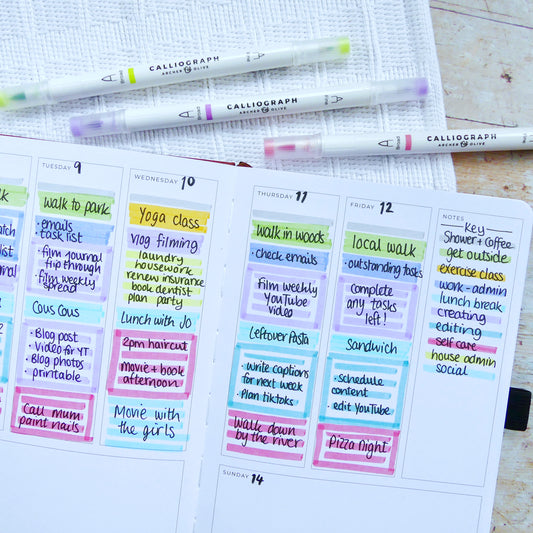 CALLIOGRAPH
ARCHER & OLIVE
Broad
CALLIOGRAPH
ARCHER & OLIVE
Broad
CALLIOGRAPH
ARCHER & OLIVE
Broad
TUESDAY 9
walk to park
· emails
· task list
· film journal
flip through
· film weekly
spread
Cous Cous
· Blog post
· Video for YT
· Blog photos
· printable
Call mum
paint nails
WEDNESDAY 10
Yoga class
Vlog filming
laundry
housework
renew insurance
book dentist
plan party
Lunch with Jo
2pm haircut
movie + book
afternoon
Movie with
the girls
THURSDAY 11
walk in woods
· check emails
Film weekly
YouTube
video
Leftover Pasta
· write captions
for next week
· Plan tiktoks
Walk down
by the river
FRIDAY 12
local walk
· outstanding tasks
complete
any tasks
left!
Sandwich
· schedule
content
· edit YouTube
Pizza Night
NOTES
Key
Shower + Coffee
get outside
exercise class
work - admin
lunch break
creating
editing
self care
house admin
social
SUNDAY 14